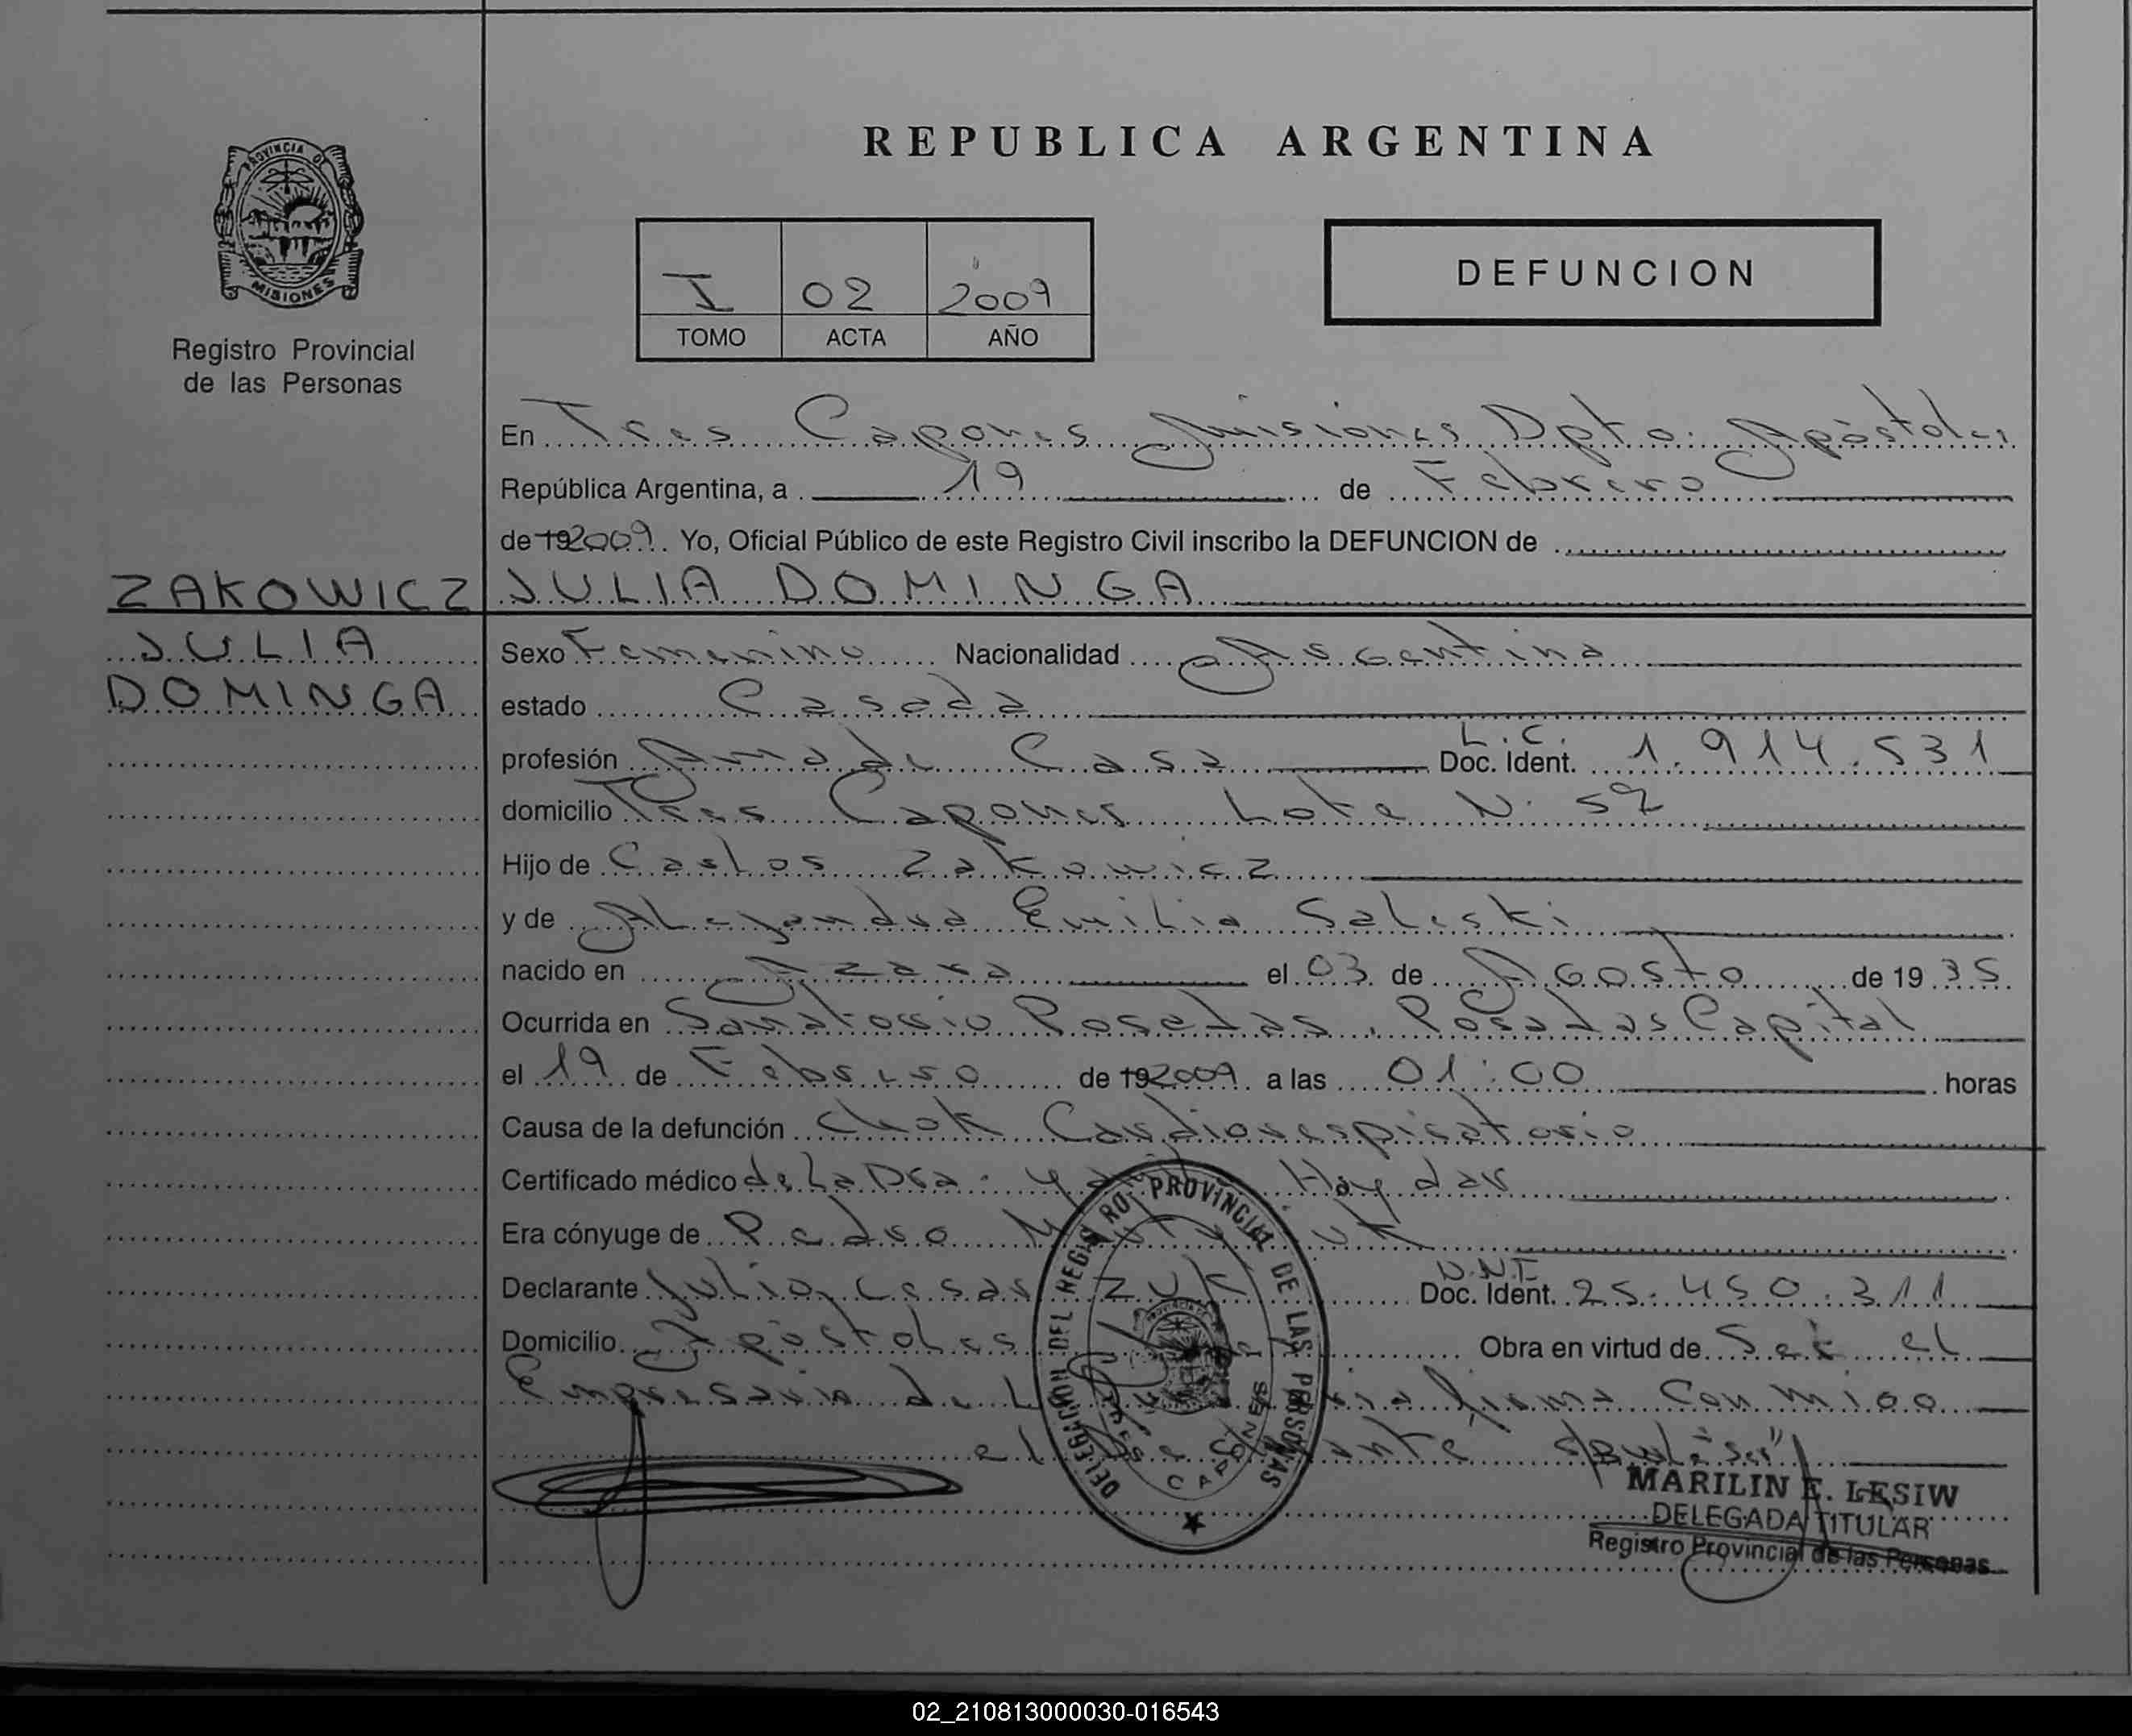 REPUBLICA ARGENTINA
PROVINCIA DE
MISIONES
Registro Provincial
de las Personas
I 02 2009
TOMO ACTA AÑO
DEFUNCION
En Tres Capones Misiones Dpto. Apóstoles
República Argentina, a 19 de Febrero
de 192009. Yo, Oficial Público de este Registro Civil inscribo la DEFUNCION de
ZAKOWICZ JULIA DOMINGA
JULIA
DOMINGA
Sexo Femenino Nacionalidad Argentina
estado Casada
profesión Ama de Casa L.C. Doc. Ident. 1.914.531
domicilio Tres Capones Lote N. 52
Hijo de Carlos Zakowicz
y de Alejandra Emilia Saleski
nacido en Azara el 03 de Agosto de 1935
Ocurrida en Sanatorio Posadas, Posadas Capital
el 19 de Febrero de 192009 a las 01:00 horas
Causa de la defunción chok Cardiorespiratorio
Certificado médico de la Dra. Haydar
Era cónyuge de Pedro
Declarante Julio Cesar ZUK D.N.I. Doc. Ident. 25.450.311
Domicilio Apostoles Obra en virtud de Ser el
Empresario de firma Conmigo
el
DELEGACION DEL REGISTRO PROVINCIAL DE LAS PERSONAS
TRES CAPONES
MARILIN E. LESIW
DELEGADA TITULAR
Registro Provincial de las Personas
02_210813000030-016543